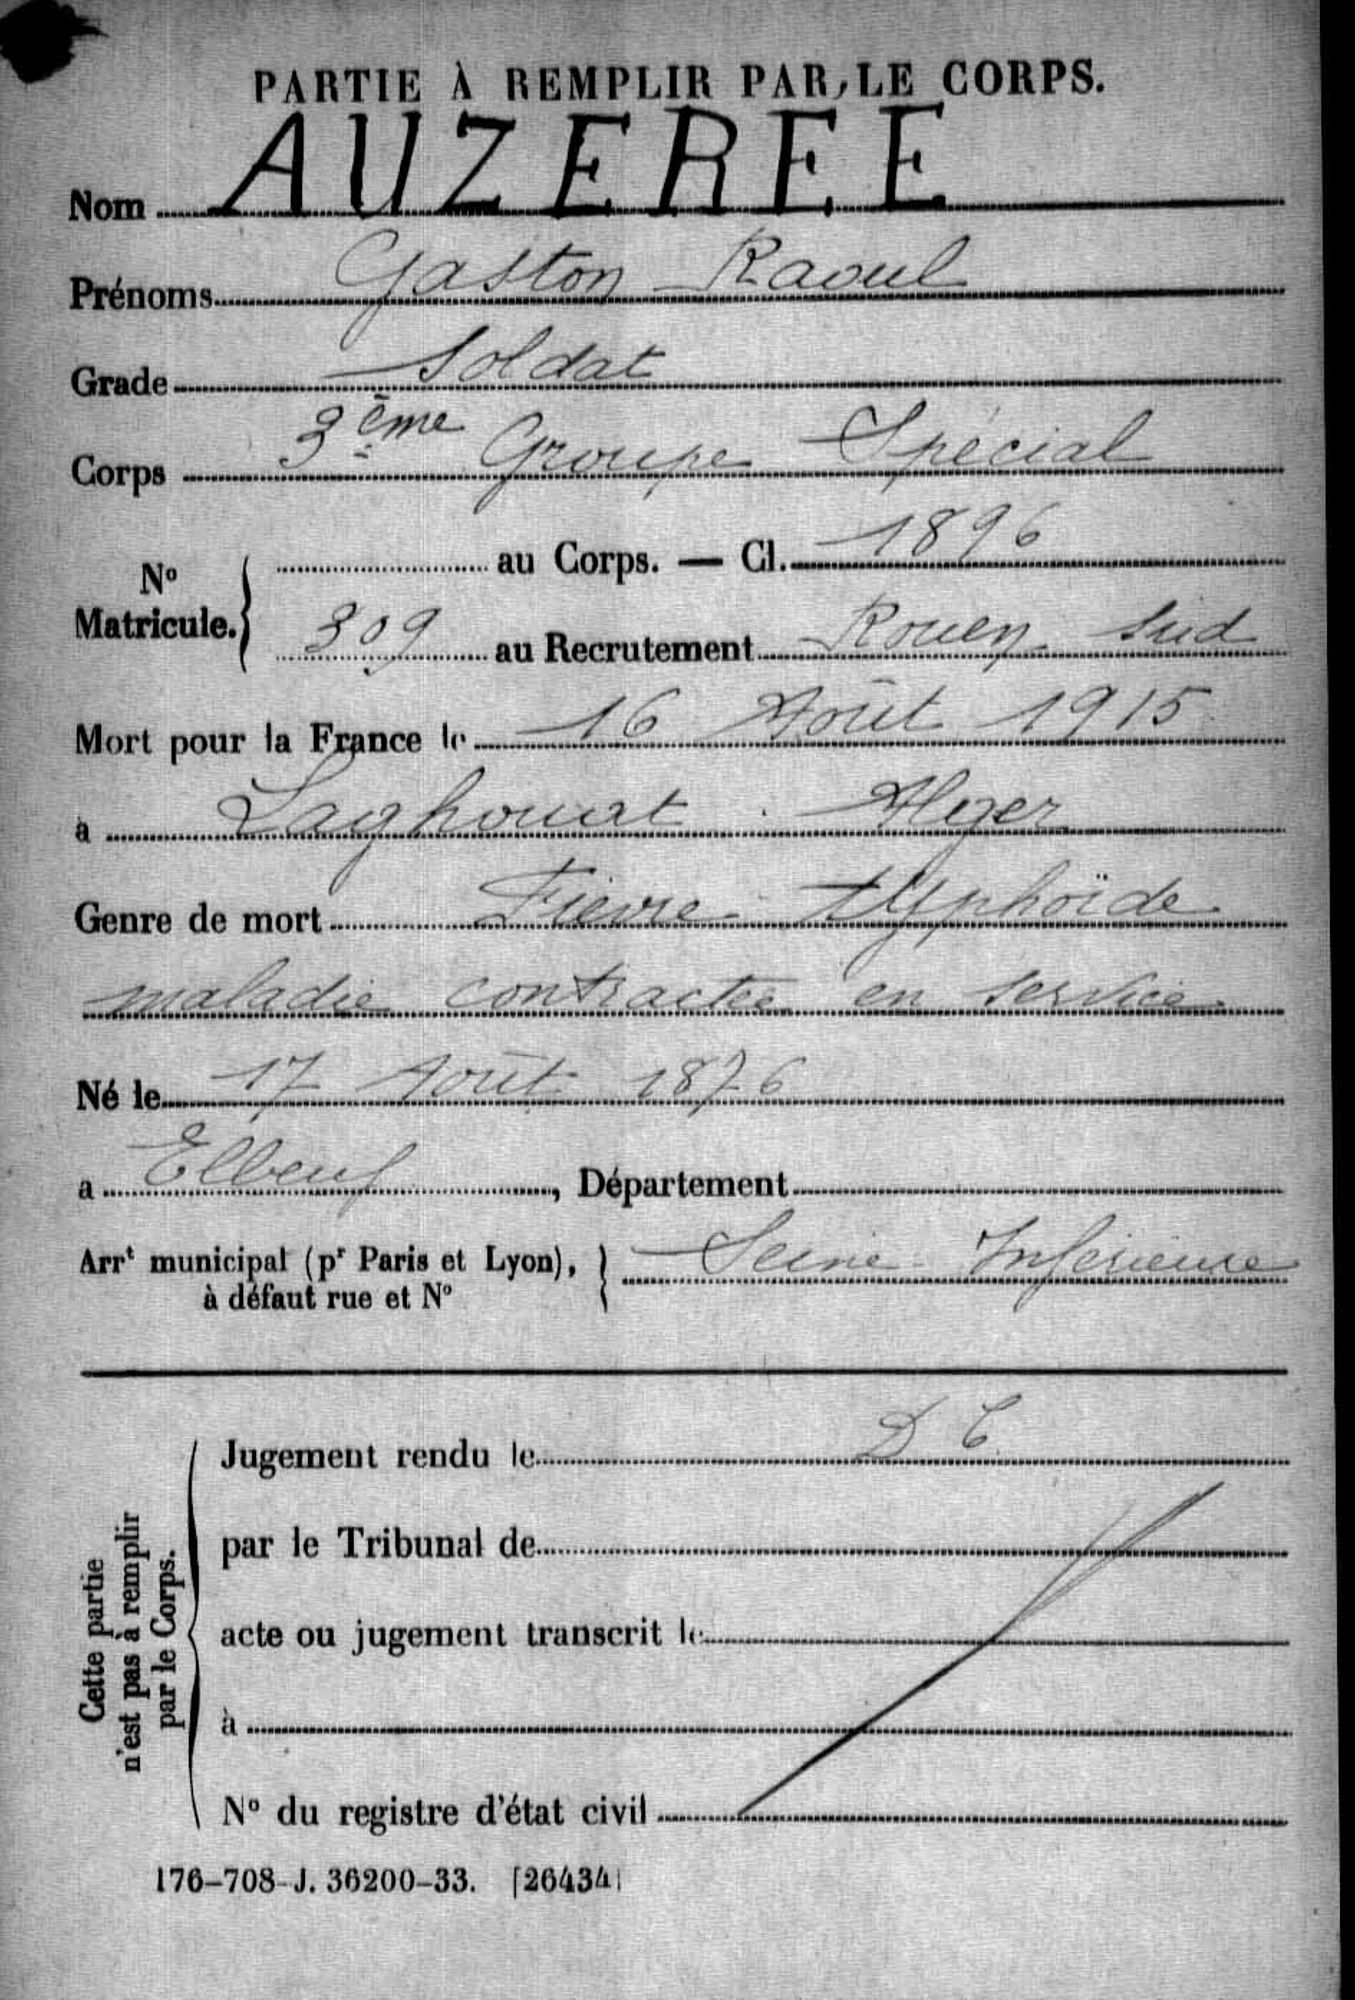 PARTIE À REMPLIR PAR LE CORPS.
Nom AUZEREE
Prénoms Gaston Raoul
Grade Soldat
Corps 3ème Groupe Spécial
No Matricule. { au Corps. — Cl. 1896
309 au Recrutement Rouen Sud
Mort pour la France le 16 Août 1915
à Laghouat Alger
Genre de mort Fièvre typhoïde
maladie contractée en service
Né le 17 Août 1876
à Elbeuf, Département
Arrt municipal (pr Paris et Lyon), à défaut rue et No } Seine Inférieure
Cette partie n'est pas à remplir par le Corps.
Jugement rendu le D C
par le Tribunal de
acte ou jugement transcrit le
à
No du registre d'état civil
176-708-J. 36200-33. [26434]